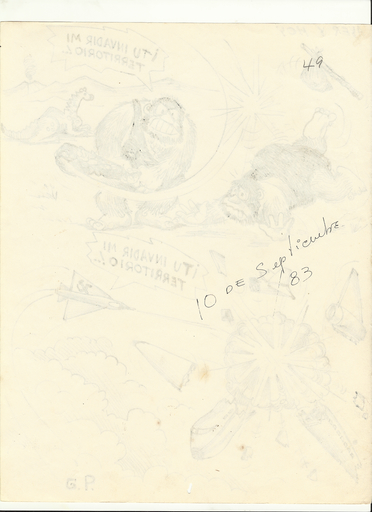 ¡TU INVADIR MI
TERRITORIO...
49
¡TU INVADIR MI
TERRITORIO...
10 DE Septiembre
83
G.P.